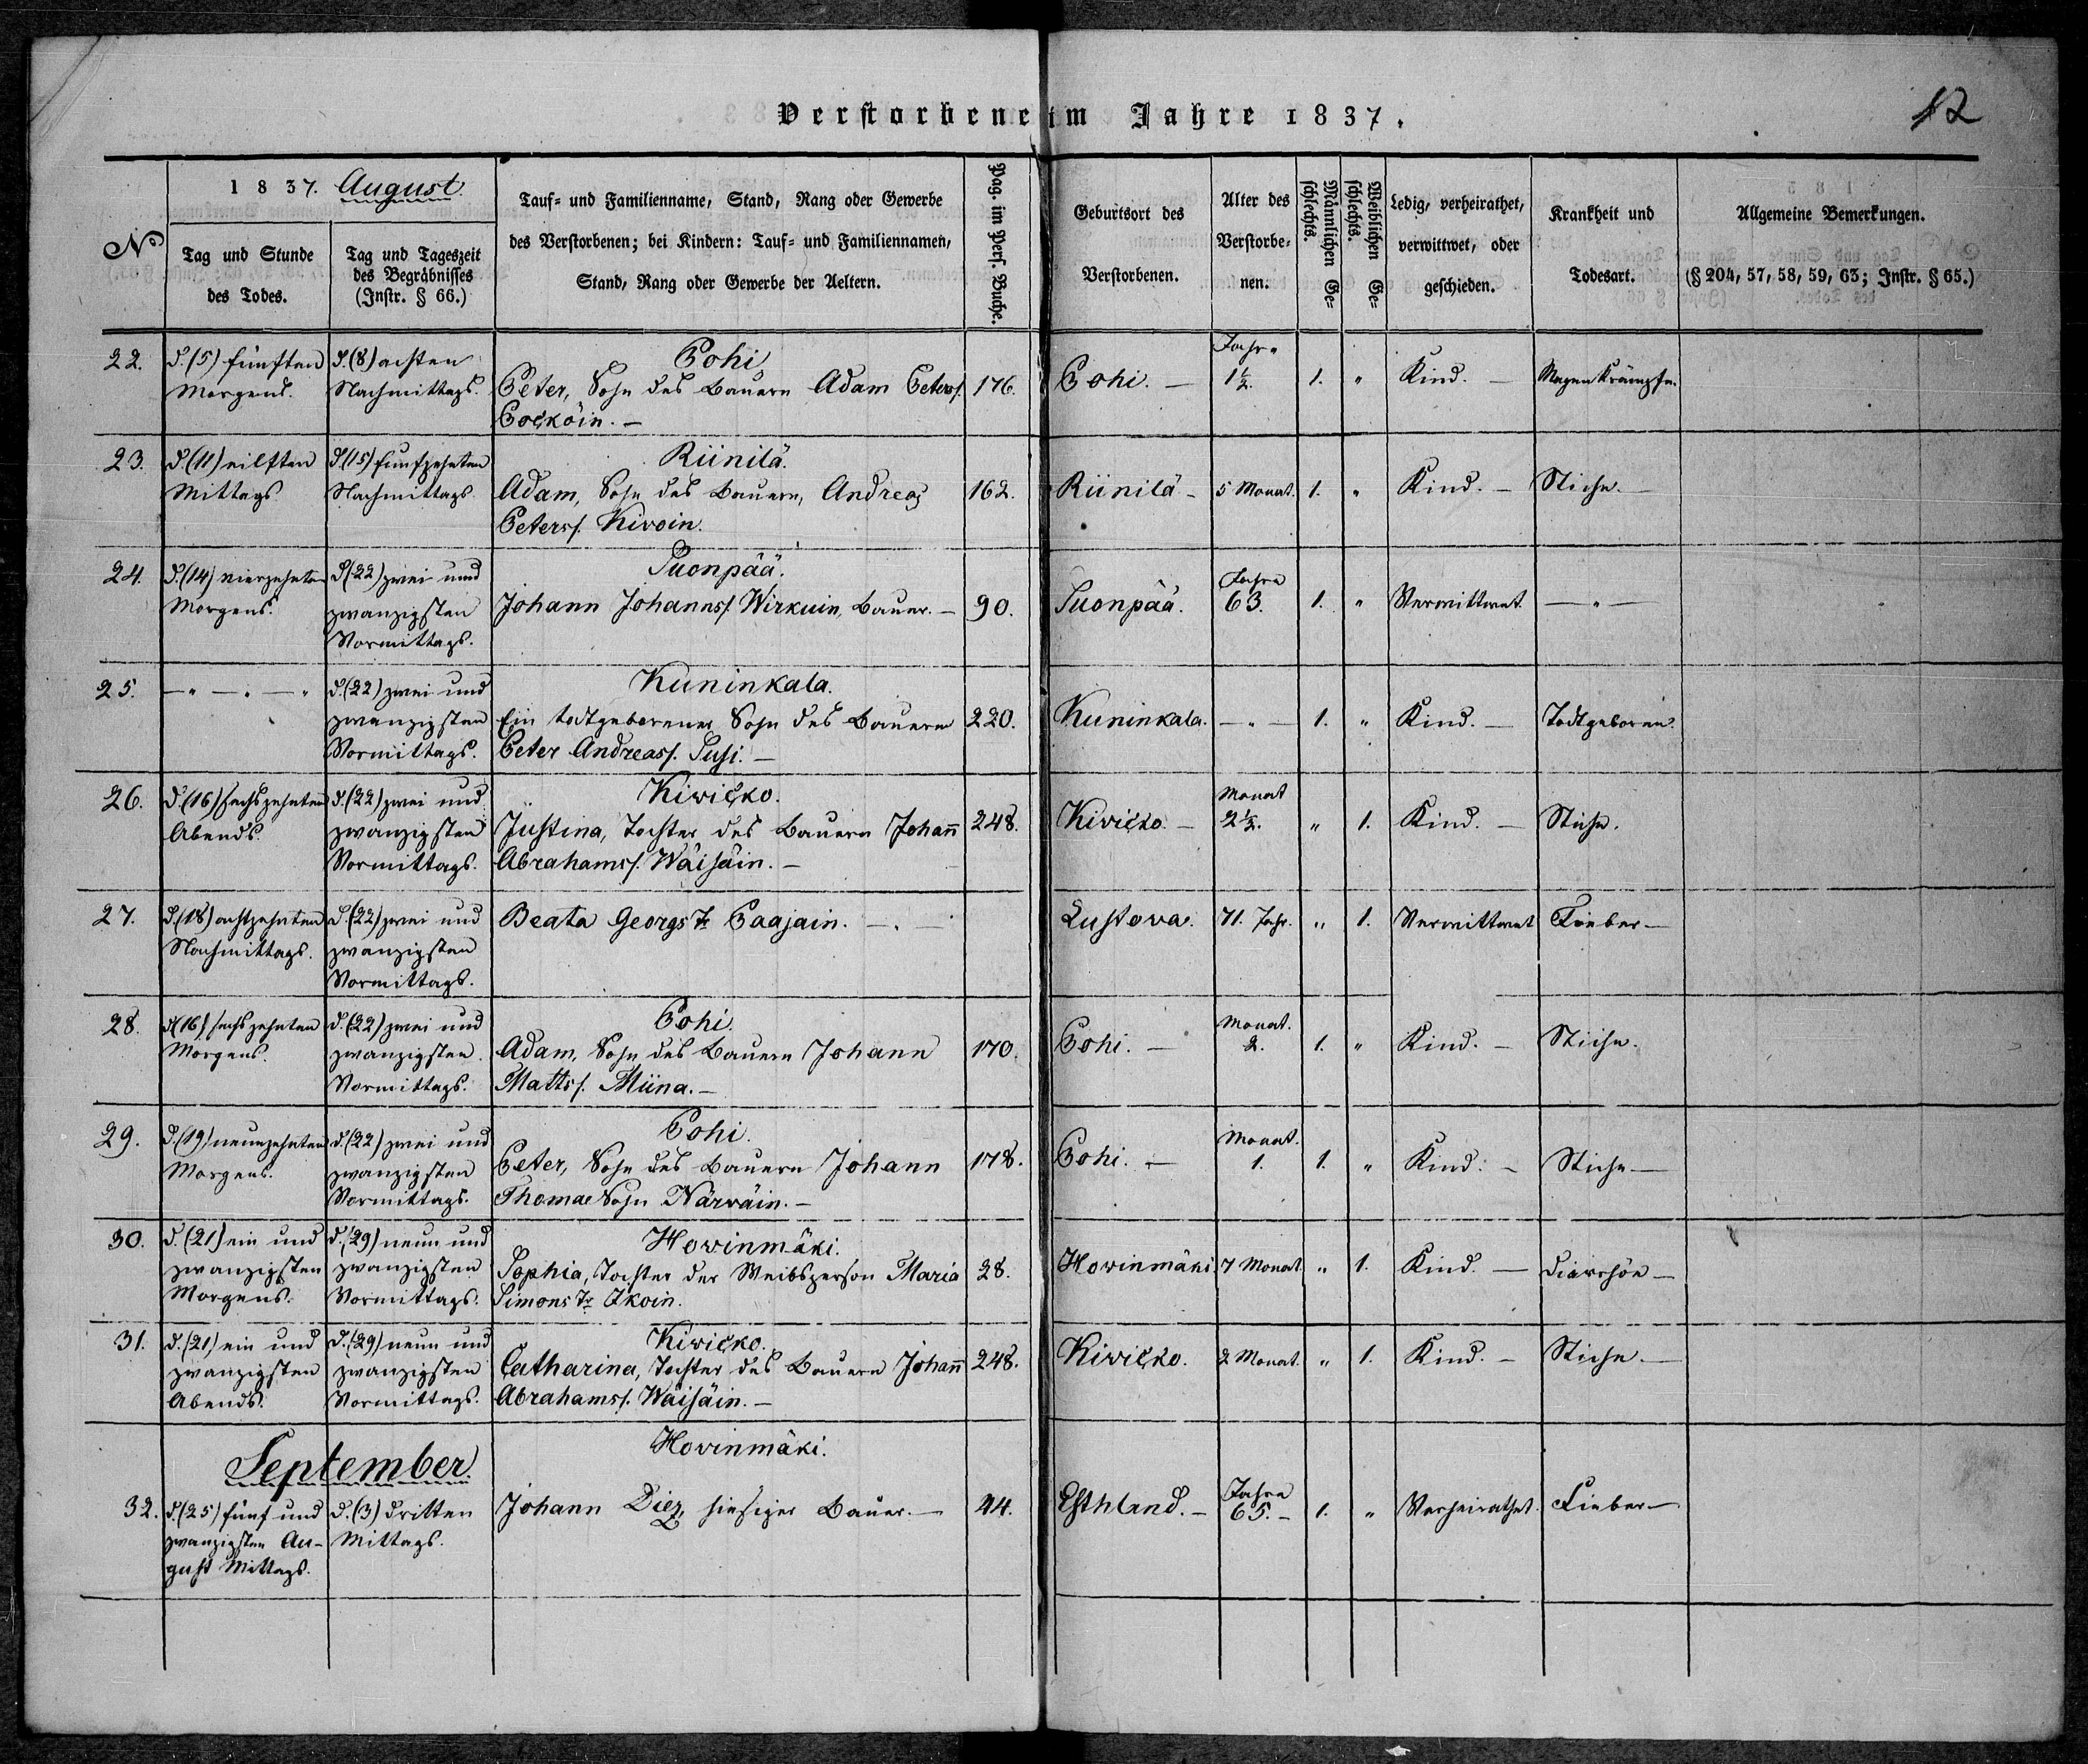 Verstorbene im Jahre 1837.
12
No
1837. August.
Tag und Stunde des Todes.
Tag und Tageszeit des Begräbnisses (Instr. § 66.)
Tauf= und Familienname, Stand, Rang oder Gewerbe
des Verstorbenen; bei Kindern: Tauf= und Familiennamen,
Stand, Rang oder Gewerbe der Aeltern.
Pag. im Pers. Buche.
Geburtsort des Verstorbenen.
Alter des Verstorbe= nen.
Männlichen Ge= schlechts.
Weiblichen Ge= schlechts.
Ledig, verheirathet, verwittwet, oder geschieden.
Krankheit und Todesart.
Allgemeine Bemerkungen.
(§ 204, 57, 58, 59, 63; Instr. § 65.)
22. d. (5) fünften d. (8) achten Pohi Jahr
Morgens. Nachmittags. Peter, Sohn des Bauern Adam Peters. 176. Pohi. — 1½. 1. " Kind. — Magen Krämpfe.
Pockoin. —
23. d. (11) eilften d. (15) funfzehnten Riinilä.
Mittags Nachmittags. Adam, Sohn des Bauern, Andreas 162. Riinilä — 5 Monat. 1. " Kind. — Stiche. —
Peterss. Kivoin.
24. d. (14) vierzehnten d. (22) zwei und Suonpää. Jahre
Morgens. zwanzigsten Johann Johannss. Wirkuin, Bauer. — 90. Suonpää. 63. 1. " Verwittwet. — " —
Vormittags.
25. — " — " — " d. (22) zwei und Kuninkala.
zwanzigsten Ein todtgeborener Sohn des Bauern 220. Kuninkala. — " — 1. " Kind. — Todtgeboren.
Vormittags. Peter Andreass. Susi. —
26. d. (16) sechszehnten d. (22) zwei und Kiwicko. Monat
Abends. zwanzigsten Justina, Tochter des Bauern Johann 248. Kivicko. — 2½. " 1. Kind. — Stiche.
Vormittags. Abrahamss. Wäisäin. —
27. d. (18) achtzehnten d. (22) zwei und Beata Georgs Tr. Paajain. — . — Lustova. 71. Jahr. " 1. Verwittwet Fieber —
Nachmittags. zwanzigsten
Vormittags.
28. d. (16) sechszehnten d. (22) zwei und Pohi. Monat.
Morgens. zwanzigsten Adam, Sohn des Bauern Johann 170. Pohi. — 2. 1. " Kind. — Stiche.
Vormittags. Mattss. Miina. —
29. d. (19) neunzehnten d. (22) zwei und Pohi. Monat.
Morgens. zwanzigsten Peter, Sohn des Bauern Johann 178. Pohi. — 1. 1. " Kind. — Stiche —
Vormittags. Thomae Sohn Närwäin. —
30. d. (21) ein und d. (29) neun und Howinmäki.
zwanzigsten zwanzigsten Sophia, Tochter der Weibsperson Maria 28. Howinmäki. 7 Monat. " 1. Kind. —
Morgens. Vormittags. Simons Tr. Ikoin.
31. d. (21) ein und d. (29) neun und Kiwicko.
zwanzigsten zwanzigsten Catharina, Tochter des Bauern Johann 248. Kivicko. 2 Monat. " 1. Kind. — Stiche. —
Abends. Vormittags. Abrahamss. Wäisäin. —
September. Howinmäki.
Jahre
32. d. (25) fünf und d. (3) dritten Johann Diez, hiesiger Bauer. — 44. Esthland. — 65. — 1. " Verheirathet. Fieber —
zwanzigsten Au- Mittags.
gust Mittags.